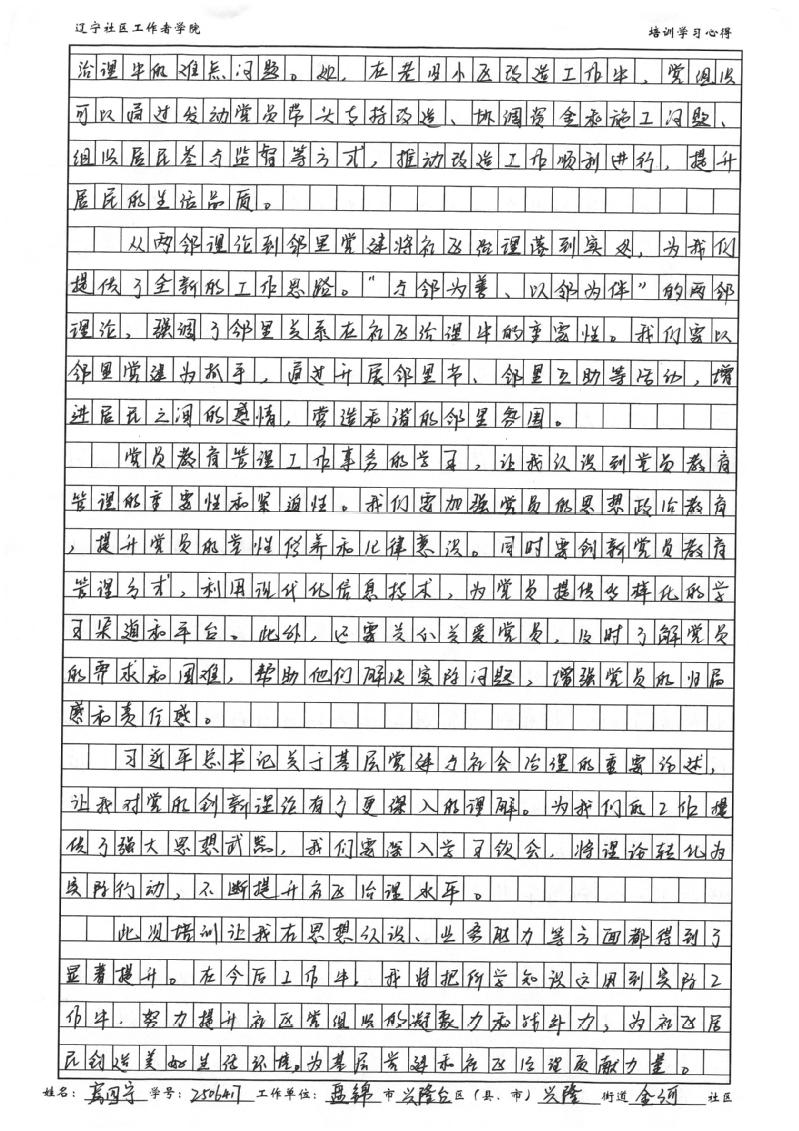 辽宁社区工作者学院 培训学习心得
治理中的难点问题。如，在老旧小区改造工作中，党组织
可以通过发动党员带头支持改造、协调资金和施工问题、
组织居民参与监督等方式，推动改造工作顺利进行，提升
居民的生活品质。
从两邻理论到邻里党建将社区治理落到实处，为我们
提供了全新的工作思路。“与邻为善、以邻为伴”的两邻
理论，强调了邻里关系在社区治理中的重要性。我们要以
邻里党建为抓手，通过开展邻里节、邻里互助等活动，增
进居民之间的感情，营造和谐的邻里氛围。
党员教育管理工作事务的学习，让我认识到党员教育
管理的重要性和紧迫性。我们要加强党员的思想政治教育
，提升党员的党性修养和纪律意识。同时要创新党员教育
管理方式，利用现代化信息技术，为党员提供多样化的学
习渠道和平台。此外，还要关心关爱党员，及时了解党员
的需求和困难，帮助他们解决实际问题，增强党员的归属
感和责任感。
习近平总书记关于基层党建与社会治理的重要论述，
让我对党的创新理论有了更深入的理解。为我们的工作提
供了强大思想武器，我们要深入学习领会，将理论转化为
实际行动，不断提升社区治理水平。
此次培训让我在思想认识、业务能力等方面都得到了
显著提升。在今后工作中，我将把所学知识运用到实际工
作中，努力提升社区党组织的凝聚力和战斗力，为社区居
民创造美好生活环境。为基层党建和社区治理贡献力量。
姓名：高 宁 学号：2506417 工作单位：盘锦 市 兴隆台 区（县、市） 兴隆 街道 金河 社区